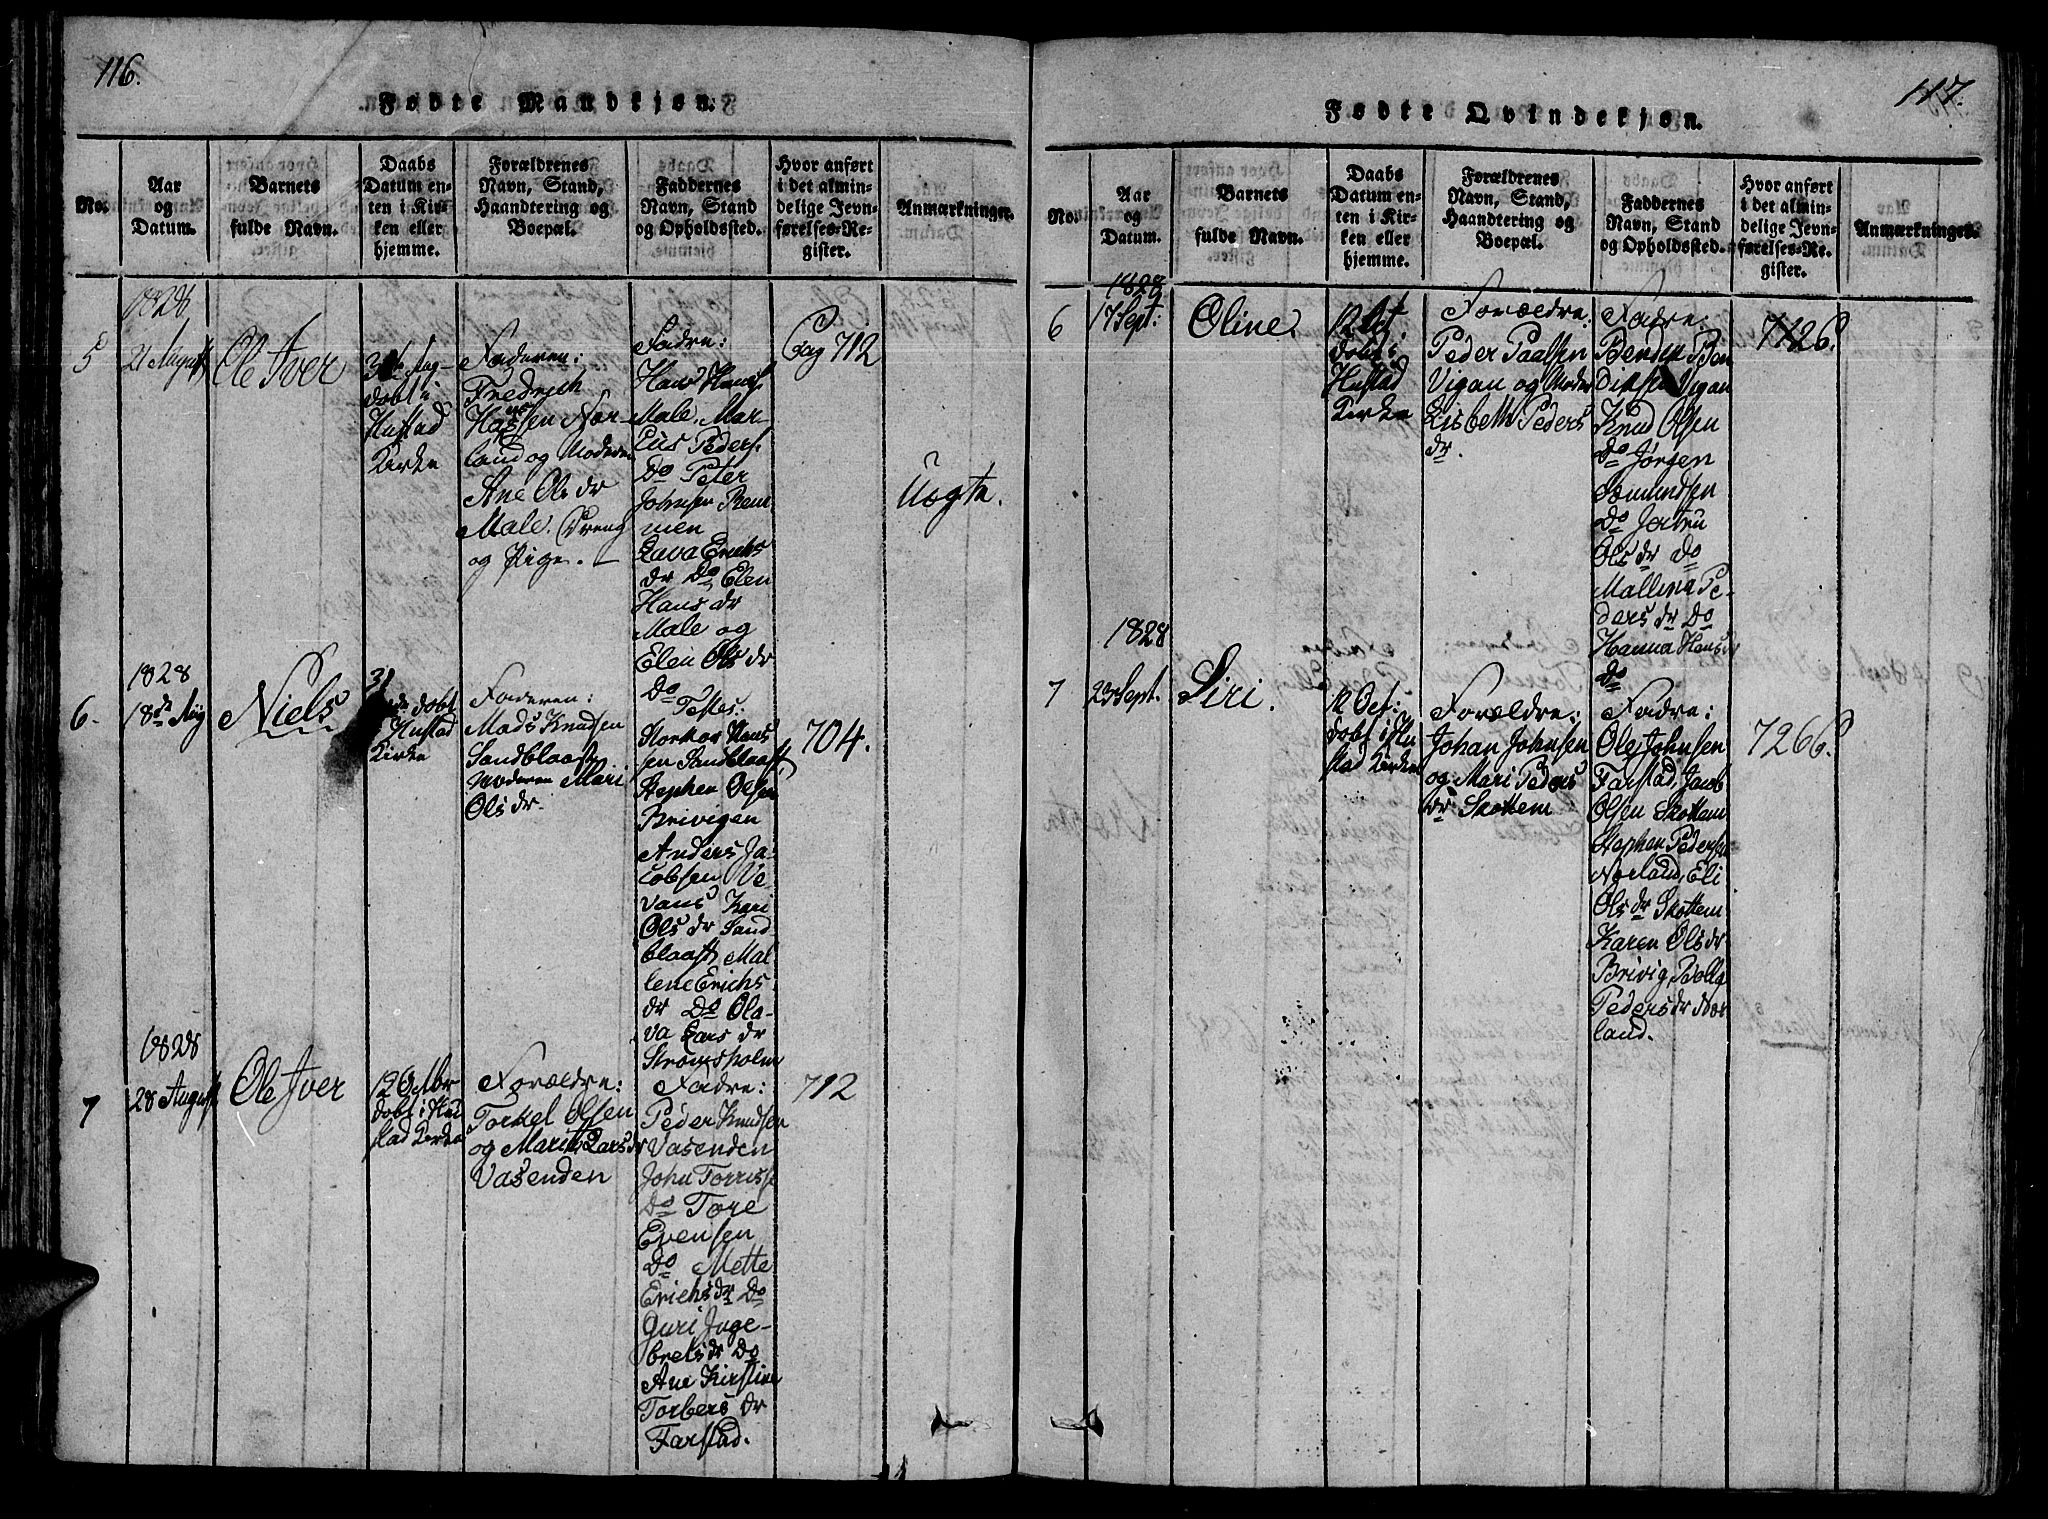 116.
Fødte Mandkjøn.
No.
Aar
og
Datum.
Barnets
fulde Navn.
Daabs
Datum en-
ten i Kir-
ken eller
hjemme.
Forældrenes
Navn, Stand,
Haandtering og
Boepæl.
Faddernes
Navn, Stand
og Opholdssted.
Hvor anført
i det almin-
delige Jevn-
førelses-Re-
gister.
Anmærkninger.
1828
5
21 August
Ole Iver
Aug-
døbt i
Hustad
Kirke
Faderen:
Fredrich
Hansen Nør-
land og Moderen
Ane Ols dr
Male. Dreng
og Pige.
Fadre:
Hans Hans.
Male. Mar-
cus Peders.
Do Peter
Johnsen Rem-
men
Lava Erichs
dr Do Elen
Hans dr
Male og
Elen Ols dr
Do
Pag 712
Uægte.
1828
6.
18de Aug
Niels
31
døbt
i Hustad
Kirke
Faderen:
Mads Knudsen
Sandblaast
Moderen Mari
Ols dr.
Testes:
Storkor Hans
sen Sandblaast
Stephen Olsen
Brivigen
Anders Ja-
cobsen Ve-
vans Kari
Ols dr Sand-
blaast, Mal-
lene Erichs
dr Do Ola-
va Lars dr
Stromsholm
704.
1828
7
28 August
Ole Iver
12 Octbr
døbt i Hu
stad Kirke
Forældre:
Torkel Olsen
og Marit Lars dr
Vasenden
Fadre:
Peder Knudsen
Vasenden
John Torriss.
Do Tore
Evensen
Do Mette
Erichs dr Do
Guri Inge-
brets dr Do
Ane Kirstine
Torbers dr
Farstad.
712
117.
Fødte Qvindekjøn.
No.
Aar
og
Datum.
Barnets
fulde Navn.
Daabs
Datum en-
ten i Kir-
ken eller
hjemme.
Forældrenes
Navn, Stand,
Haandtering og
Boepæl.
Faddernes
Navn, Stand
og Opholdssted.
Hvor anført
i det almin-
delige Jevn-
førelses-Re-
gister.
Anmærkninger.
1828
6
17 Sept:
Oline.
12 Oct.
døbt i
Hustad
Kirke
Forældre:
Peder Paalsen
Vigan og Moder
Lisbeth Peders
dr.
Fadre:
Bendix Ben
Vigan
Knud Olsen
Do Jørgen
Sæmundsen
Do Jertru
Ols dr do
Mallena Pe-
ders dr Do
Hanna Hans dr
Do
726.
1828
7
23 Sept.
Siri.
12 Oct:
døbt i Hu
stad Kirke
Forældre:
Johan Johnsen
og Mari Peders
dr Skottem
Fadre:
Ole Johnsen
Farstad, Jacob
Olsen Skottem
Stephen Pedersen
Nørland, Eli
Ols dr Skottem
Karen Ols dr
Brivig,
Peders dr Nør
land.
726